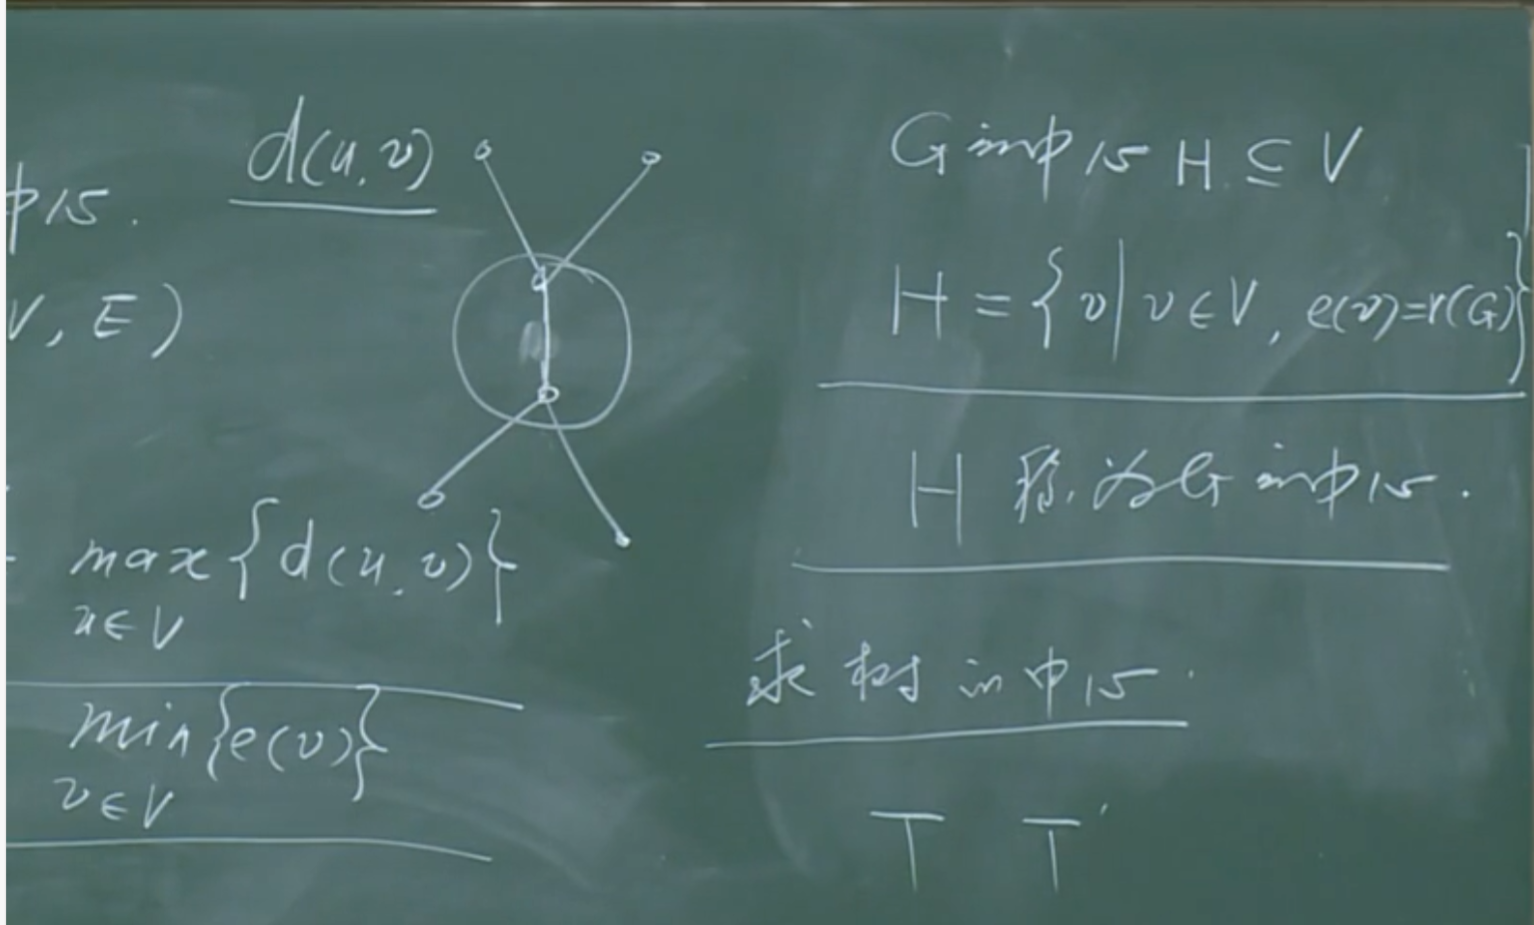 中心.
V, E)
d(u,v)
max{d(u,v)}
u∈V
min{e(v)}
v∈V
G的中心 H ⊆ V
H = {v|v∈V, e(v)=r(G)}
H 称为G的中心.
求树的中心.
T T'